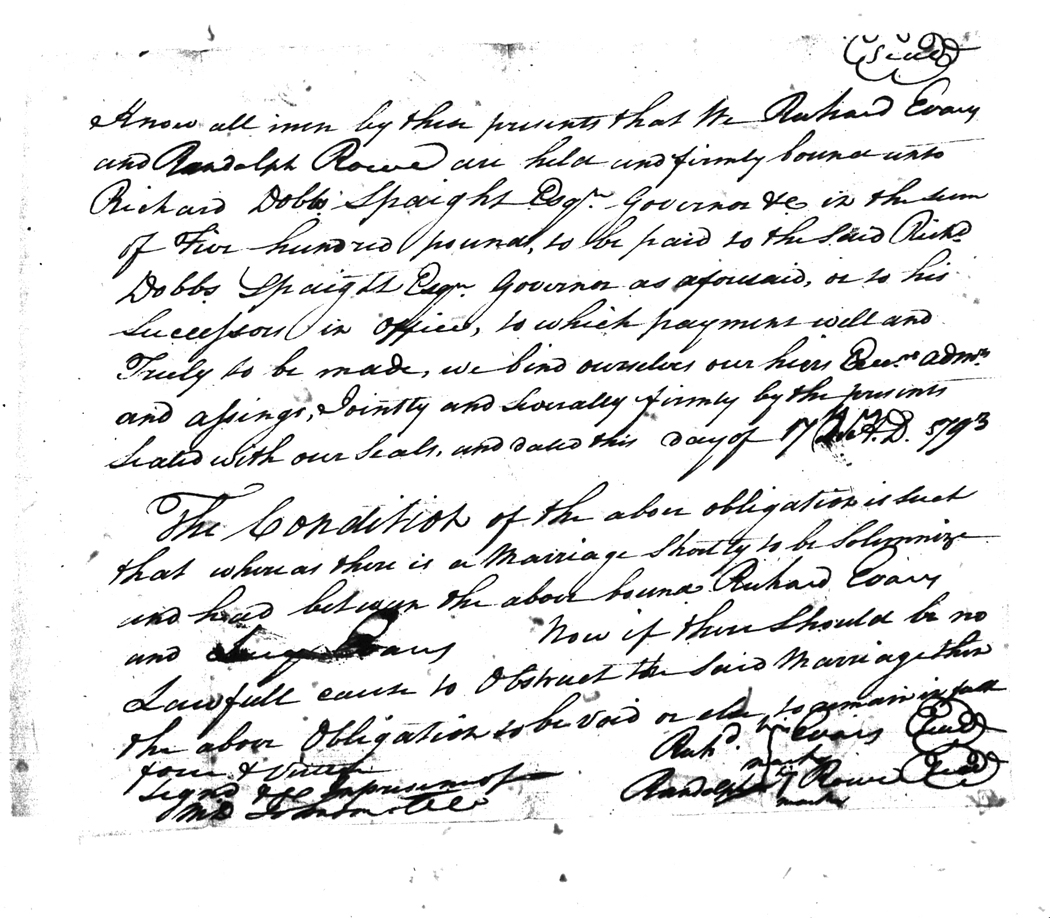 Seal
Know all men by these presents that We Richard Evans
and Randolph Rowe are held and firmly bound unto
Richard Dobbs Spaight Esqr. Governor &c in the sum
of Five hundred pound, to be paid to the said Richd.
Dobbs Spaight Esqr. Governor as aforesaid, or to his
Successors in office, to which payment well and
Truely to be made, we bind ourselves our hiers Exers. admrs.
and assings, Jointly and Severally firmly by the presents
Sealed with our Seals, and dated this day of 17 A.D. 1793
The Condition of the above obligation is such
that where as there is a Marriage Shortly to be Solemnize
and had between the above bound Richard Evans
and Evans Now if there Should be no
Lawfull cause to Obstruct the Said Marriage then
the above Obligation to be void or else to remain in full
force & Virtue
Richd. his Evans Seal
mark
Signd &c In presence of
Randolph Rowe Seal
mark
Johnson